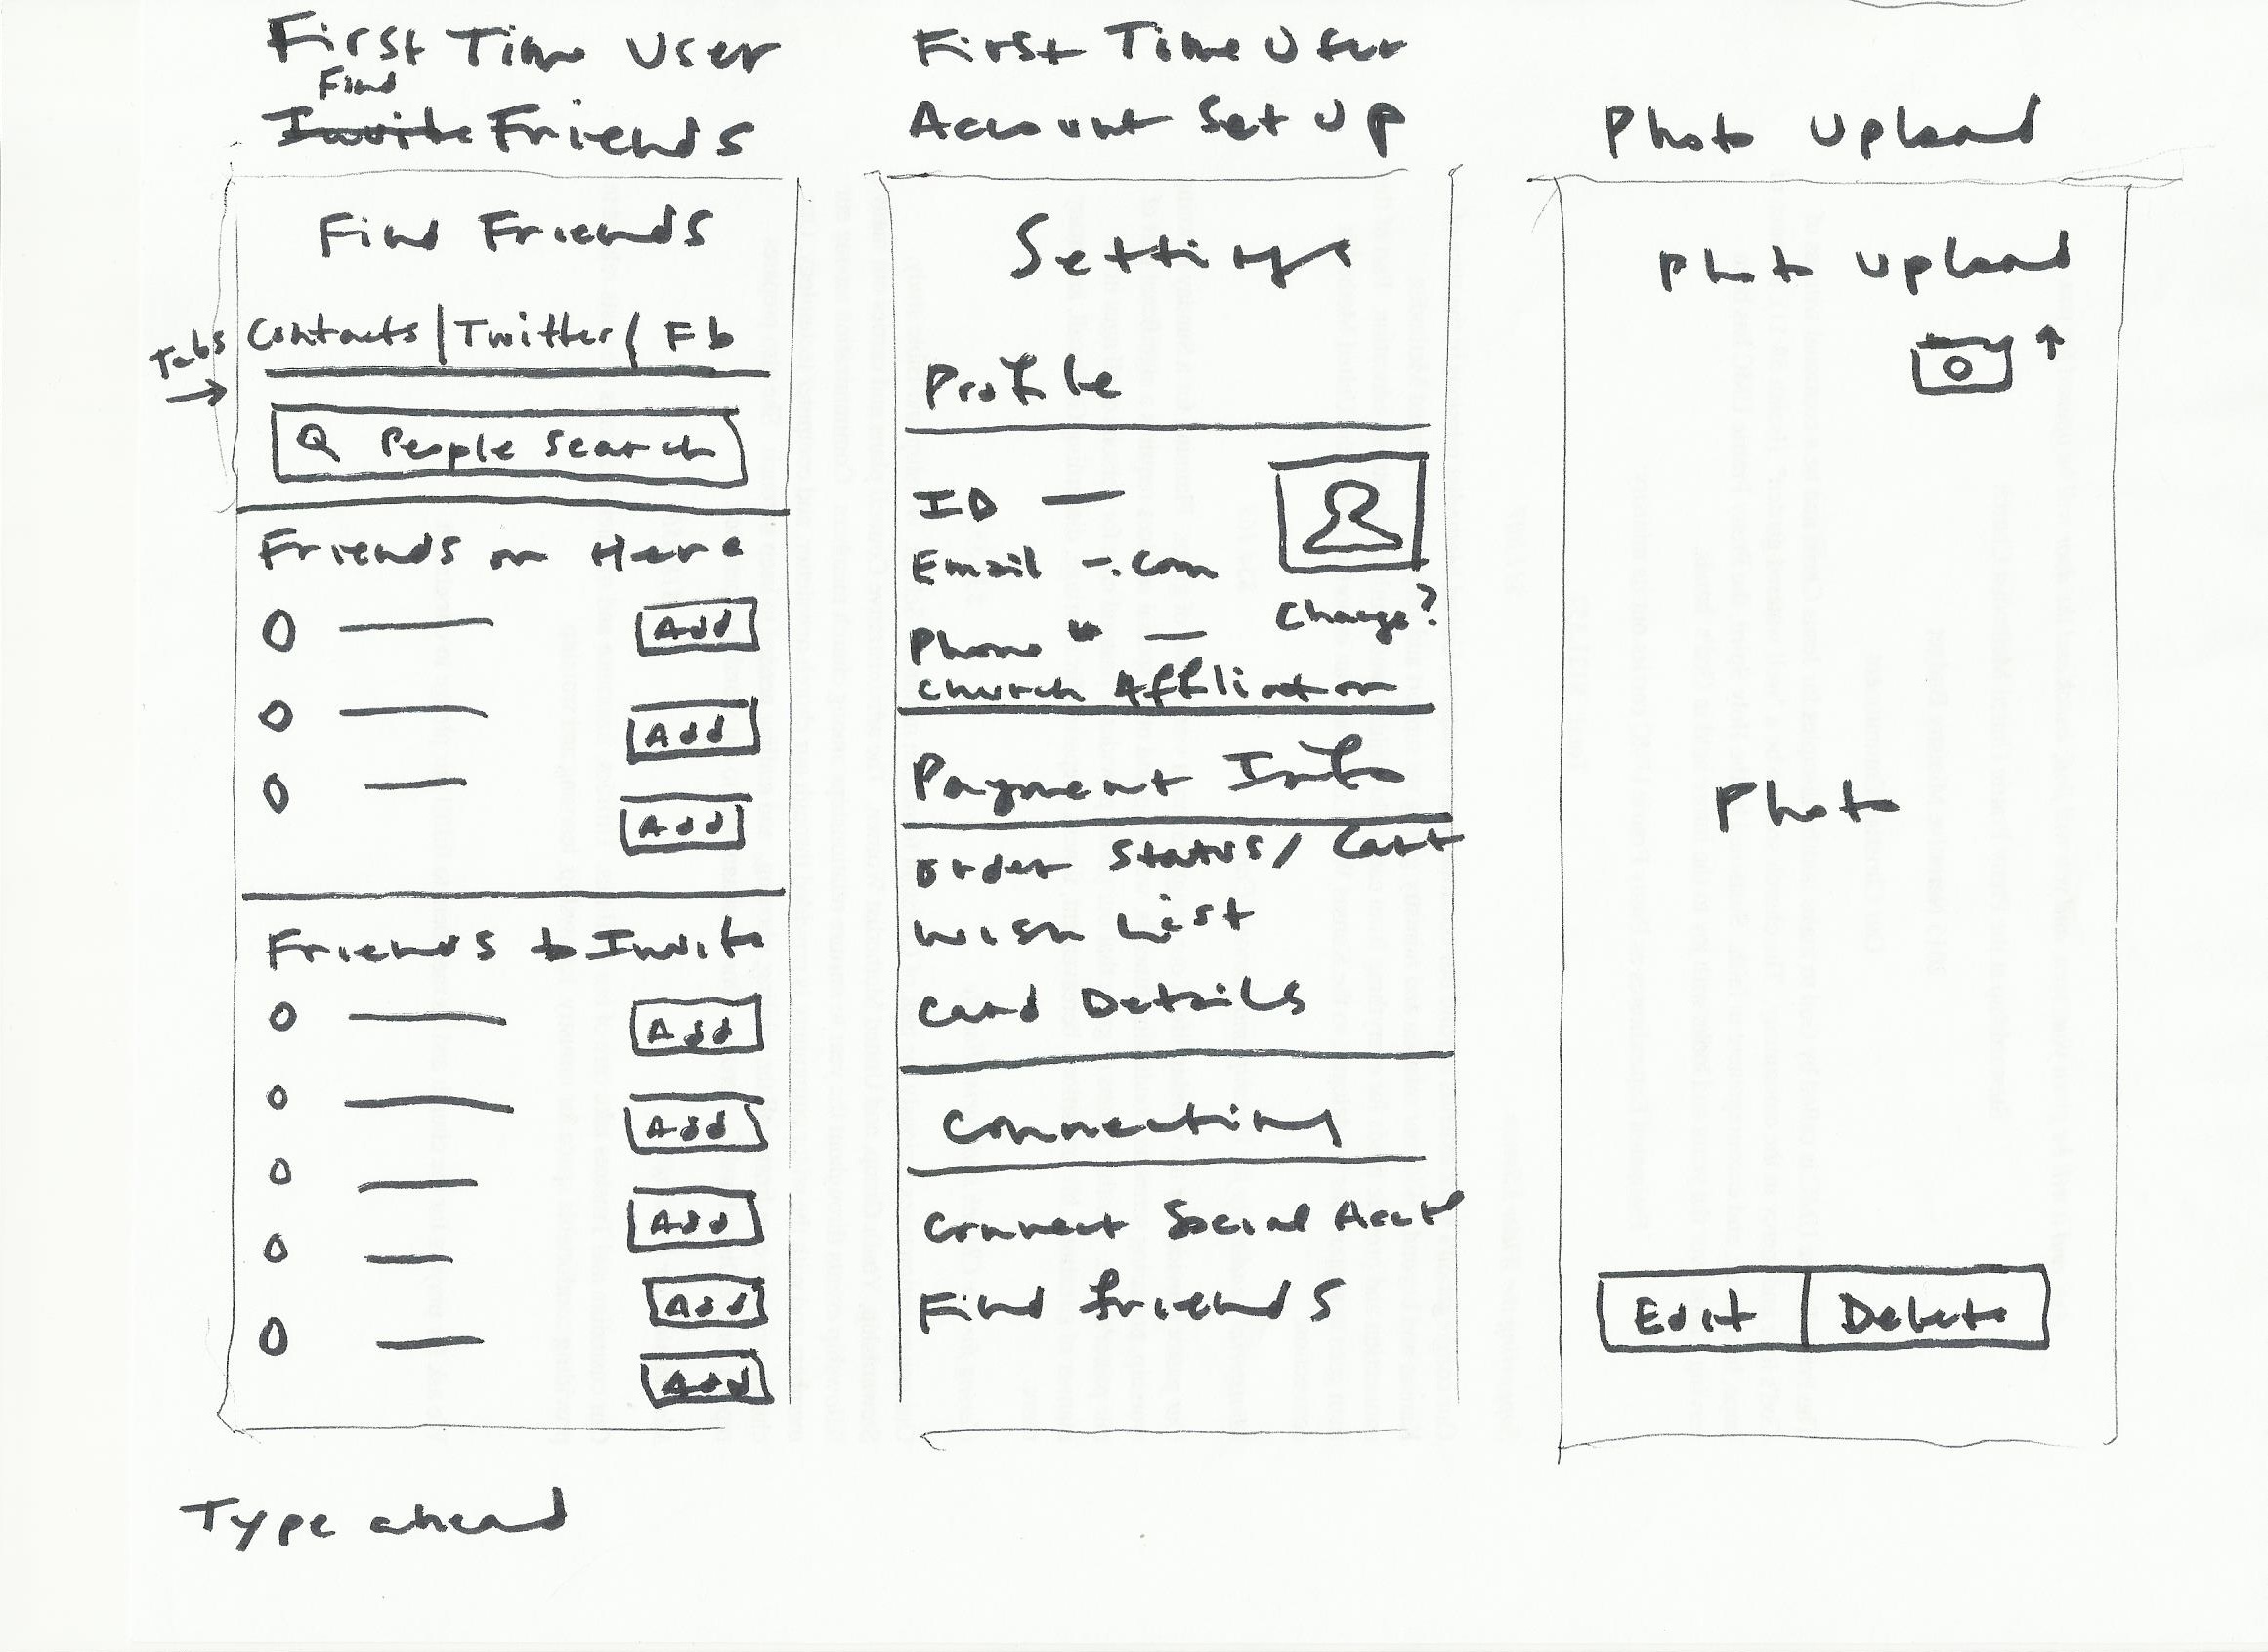 First Time User
Find
Invite Friends
Find Friends
Tabs
Contacts | Twitter / Fb
People Search
Friends on Here
Add
Add
Add
Friends to Invite
Add
Add
Add
Add
Add
Type ahead
First Time User
Account Set Up
Settings
Profile
ID
Email -.com
Change?
Phone # —
Church Affliation
Payment Info
Order Status / Cart
Wish List
Card Details
Connecting
Connect Social Acct
Find Friends
Photo Upload
Photo Upload
Photo
Edit | Delete